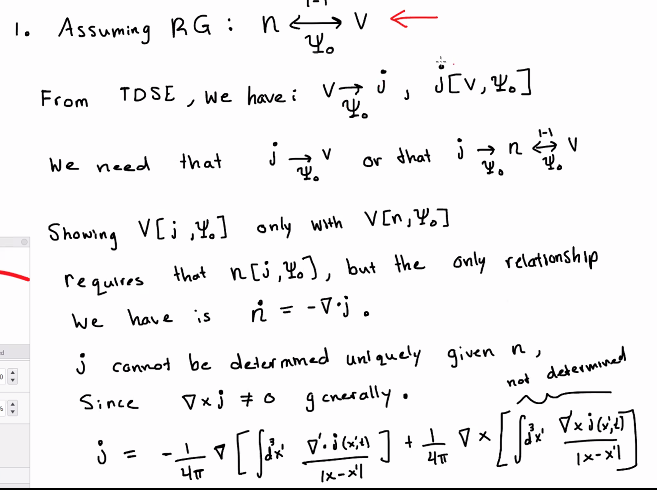 1. Assuming RG : n ⟷ V
1-1
Ψ₀
From TDSE, we have: V → j , j[V, Ψ₀]
Ψ₀
We need that j → V or that j → n ⟷ V
Ψ₀ Ψ₀ 1-1 Ψ₀
Showing V[j, Ψ₀] only with V[n, Ψ₀]
requires that n[j, Ψ₀], but the only relationship
we have is ṅ = -∇·j.
j cannot be determined uniquely given n,
Since ∇×j ≠ 0 generally.
not determined
j = -1/4π ∇ [∫d³x' ∇'·j(x',t)/|x-x'|] + 1/4π ∇× [∫d³x' ∇'×j(x',t)/|x-x'|]